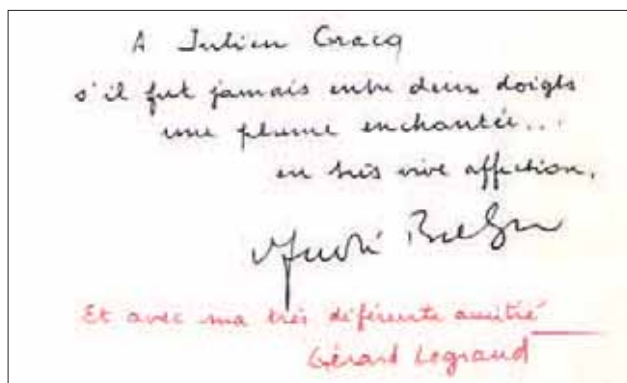 A Julien Gracq
s'il fut jamais entre deux doigts
une plume enchantée...
en très vive affection,
André Breton
Et avec ma très déférente amitié
Gérard Legrand